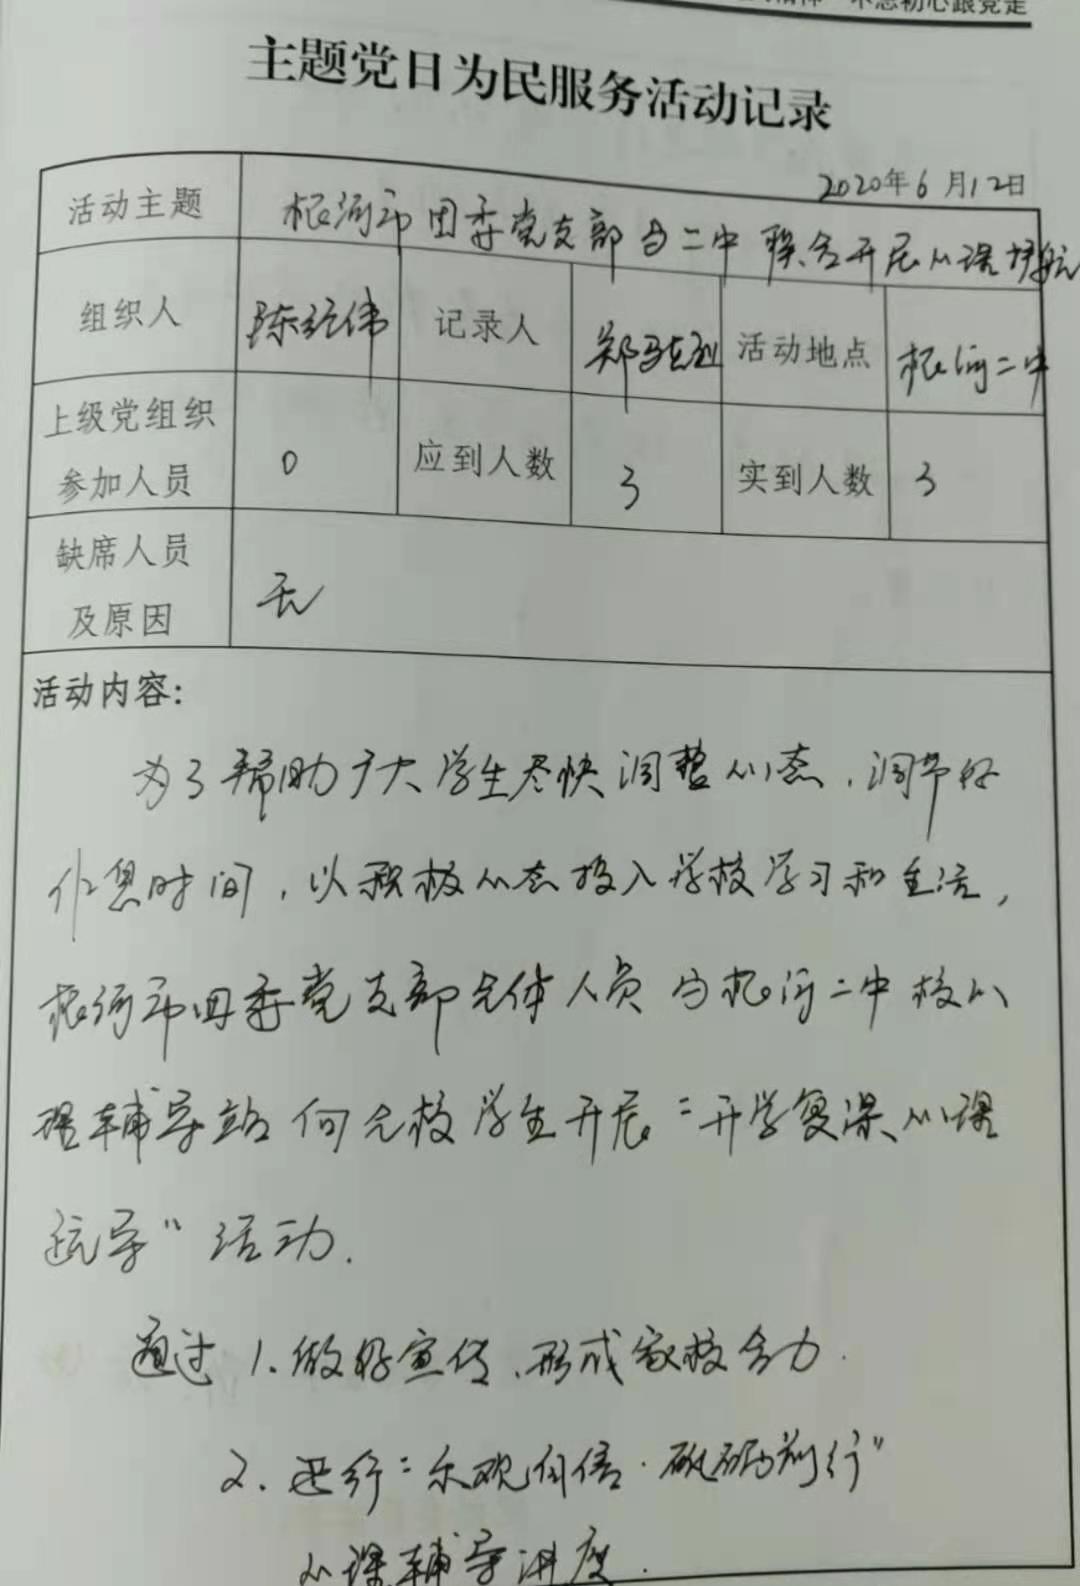 不忘初心跟党走
主题党日为民服务活动记录
2020年6月12日
活动主题 根河市团委党支部与二中联合开展心理护航
组织人 陈经伟 记录人 郑 活动地点 根河二中
上级党组织
参加人员 0 应到人数 3 实到人数 3
缺席人员
及原因 无
活动内容:
为了帮助广大学生尽快调整心态,调节好
作息时间,以积极心态投入学校学习和生活,
根河市团委党支部全体人员与根河二中校心
理辅导站向全校学生开展“开学复课心理
疏导”活动.
通过 1.做好宣传、形成家校合力.
2.进行“乐观自信·砥砺前行”
心理辅导讲座.